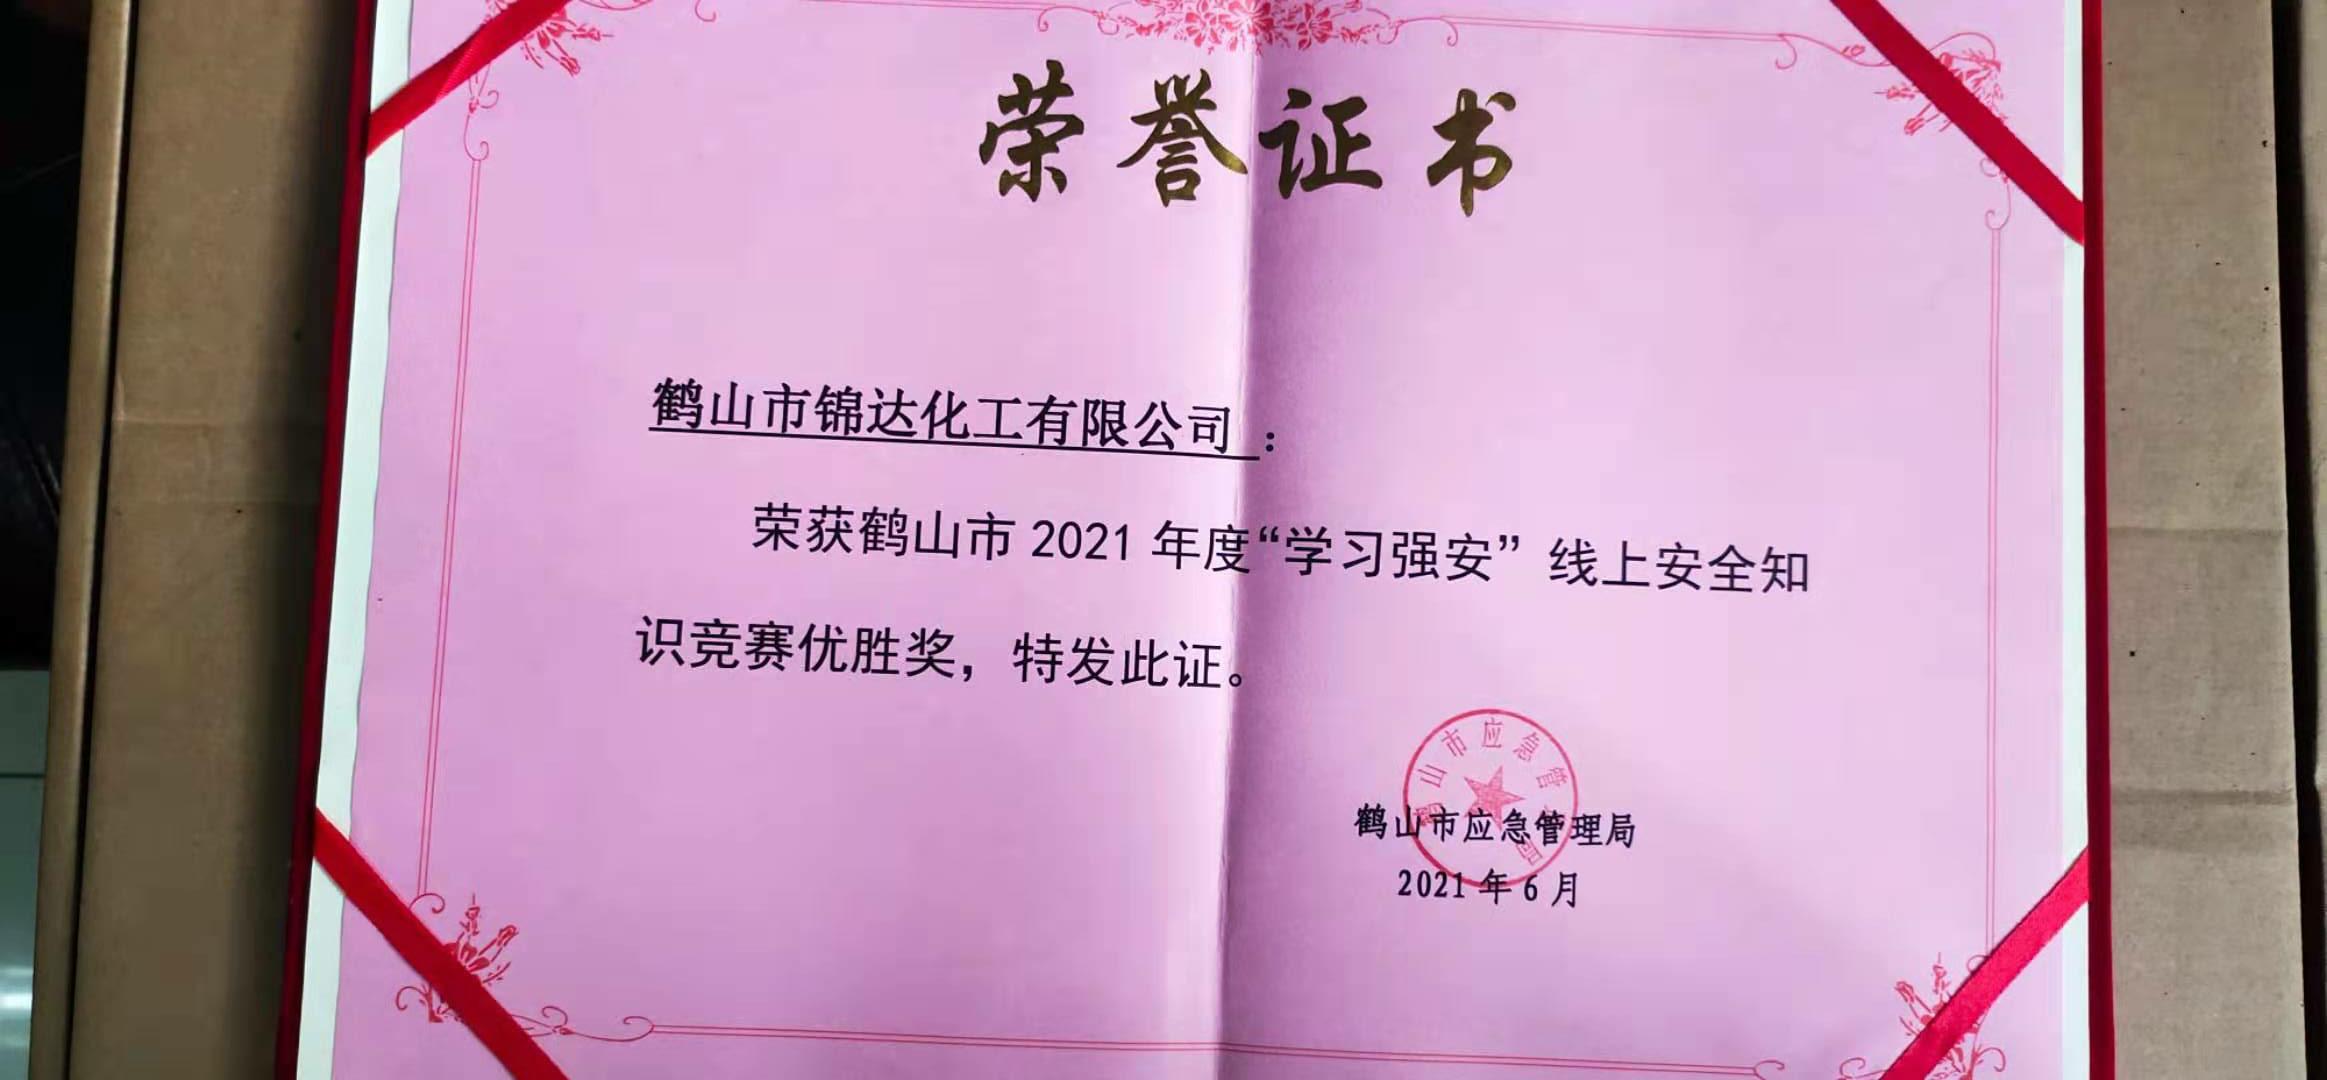 荣誉证书
鹤山市锦达化工有限公司：
荣获鹤山市2021年度“学习强安”线上安全知
识竞赛优胜奖，特发此证。
鹤山市应急管理局
鹤山市应急管理局
2021年6月